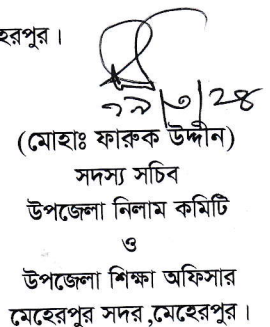 হেরপুর।
(মোহাঃ ফারুক উদ্দীন)
সদস্য সচিব
উপজেলা নিলাম কমিটি
ও
উপজেলা শিক্ষা অফিসার
মেহেরপুর সদর,মেহেরপুর।